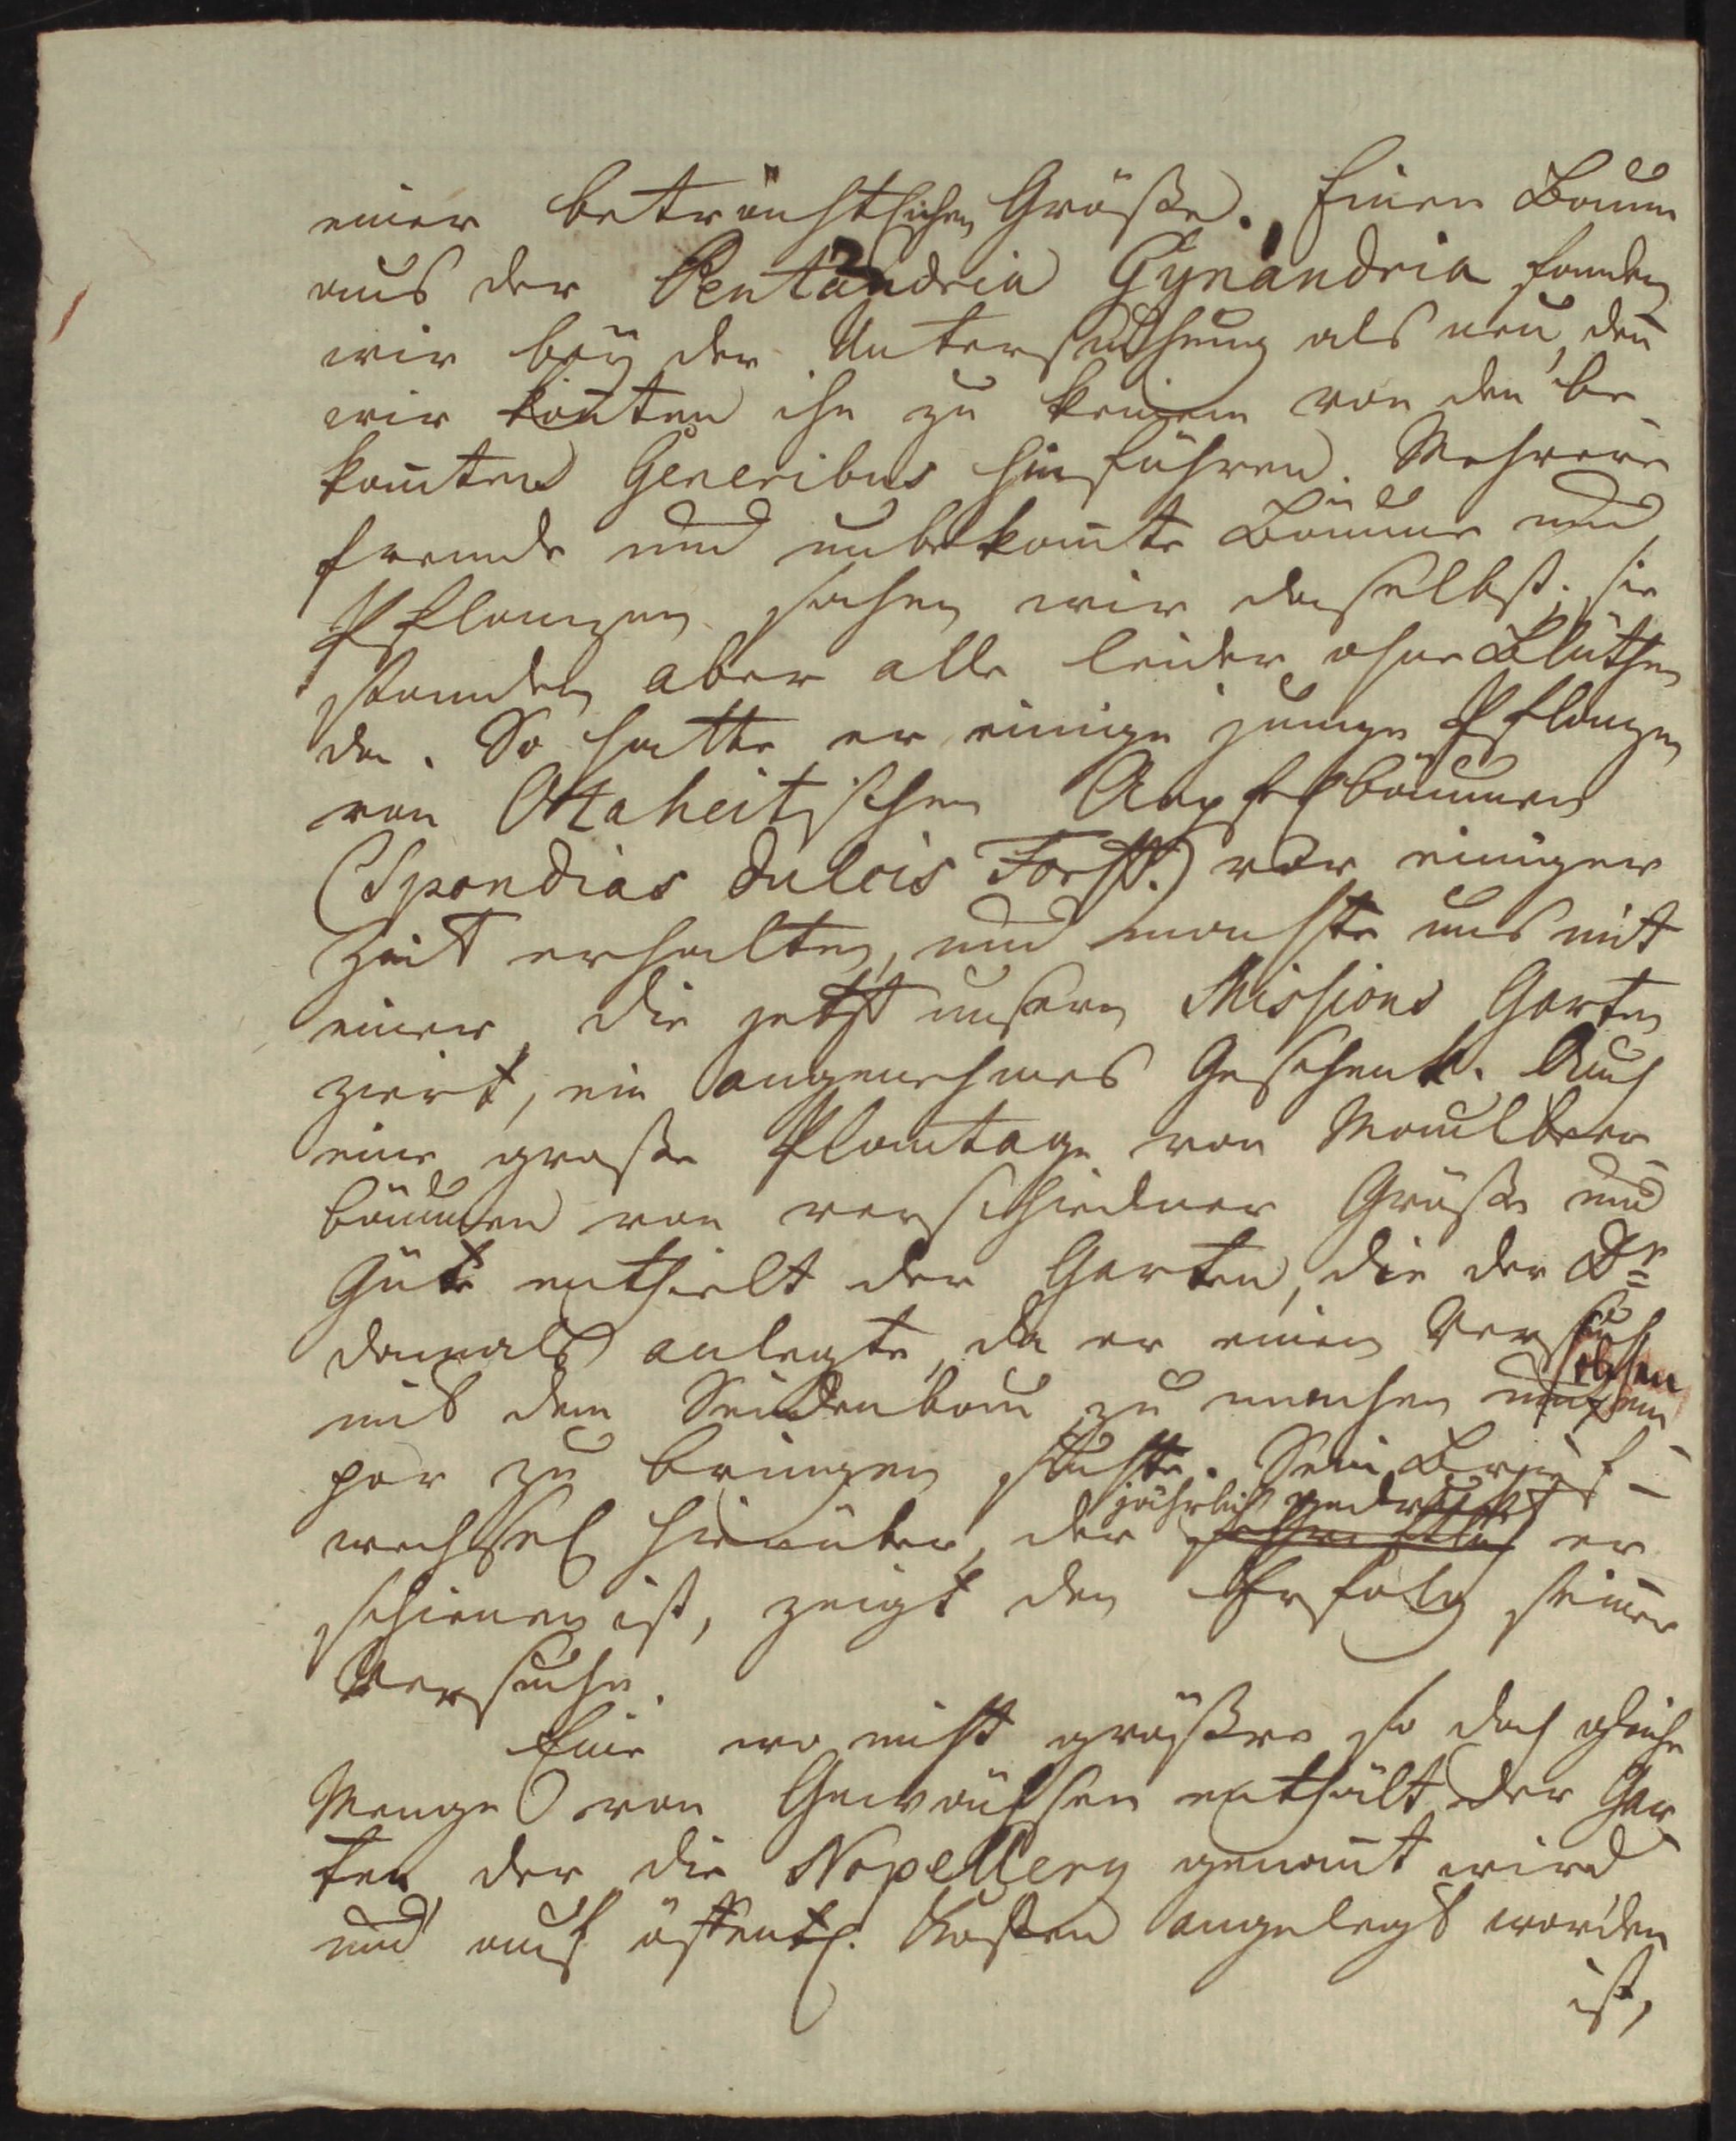 einer beträchtlichen Größe. Einen Baum
aus der Pentandria Gynandria fanden
wir bey der Untersuchung als neu, deñ
wir koñten ihn zu keinem von den be-
kañten Generibus hinführen. Mehrere
fremde und unbekañte Bäume und
Pflanzen sahen wir daselbst; sie
standen aber alle leider ohne Blüthen
da. So hatte er einige junge Pflanzen
von Otaheitischen Aepfelbäumen
(Spondias dulcis Forst.) vor einiger
Zeit erhalten, und machte uns mit
einer, die jetzt unsern Missions Garten
ziert, ein angenehmes Geschenk. Auch
eine große Plantage von Maulbeer-
bäumen von verschiedner Größe und
Güte enthielt der Garten, die der Dr
damals anlegte, da er einen Versuch
mit dem Seidenbau zu machen und solchen em
por zu bringen suchte. Sein Brief-
wechsel hierüber, der jährlich gedruckt er
schienen ist, zeigt den Erfolg seiner
Versuche.
Eine wo nicht größere so doch gleiche
Menge von Gewächsen enthält der Gar
ten der die Nopellery genañt wird
und auf öffentl. Kosten angelegt worden
ist,